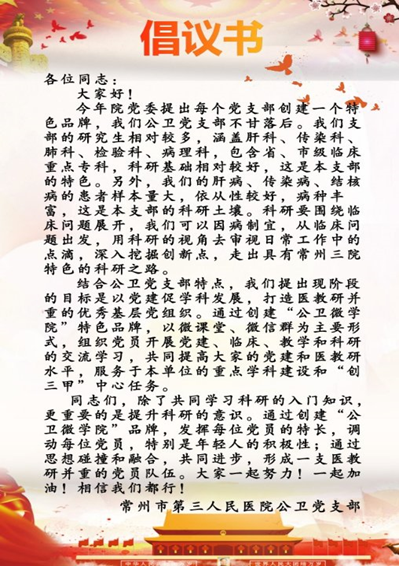 倡议书
各位同志：
大家好！
今年院党委提出每个党支部创建一个特
色品牌，我们公卫党支部不甘落后。我们支
部的研究生相对较多，涵盖肝科、传染科、
肺科、检验科、病理科，包含省、市级临床
重点专科，科研基础相对较好，这是本支部
的特色。另外，我们的肝病、传染病、结核
病的患者样本量大，依从性较好，病种丰
富，这是本支部的科研土壤。科研要围绕临
床问题展开，我们可以因病制宜，从临床问
题出发，用科研的视角去审视日常工作中的
点滴，深入挖掘创新点，走出具有常州三院
特色的科研之路。
结合公卫党支部特点，我们提出现阶段
的目标是以党建促学科发展，打造医教研并
重的优秀基层党组织。通过创建“公卫微学
院”特色品牌，以微课堂、微信群为主要形
式，组织党员开展党建、临床、教学和科研
的交流学习，共同提高大家的党建和医教研
水平，服务于本单位的重点学科建设和“创
三甲”中心任务。
同志们，除了共同学习科研的入门知识，
更重要的是提升科研的意识。通过创建“公
卫微学院”品牌，发挥每位党员的特长，调
动每位党员，特别是年轻人的积极性；通过
思想碰撞和融合，共同进步，形成一支医教
研并重的党员队伍。大家一起努力！一起加
油！相信我们都行！
常州市第三人民医院公卫党支部